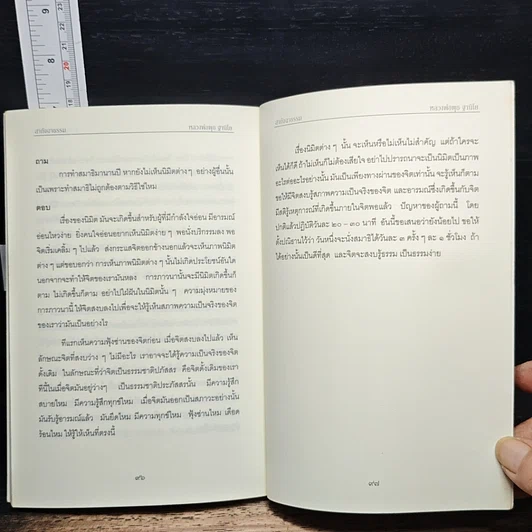 9
8
23
22
21
20
19
18
หลวงพ่อพุธ ฐานิโย
ถาม
การทำสมาธิมานานปี หากยังไม่เห็นนิมิตต่าง ๆ อย่างผู้อื่นนั้น
เป็นเพราะทำสมาธิไม่ถูกต้องตามวิธีใช่ไหม
ตอบ
เรื่องของนิมิต มันจะเกิดขึ้นสำหรับผู้ที่มีกำลังใจอ่อน มีอารมณ์
อ่อนไหวง่าย ยิ่งคนใจอ่อนอยากเห็นนิมิตง่าย ๆ พอนั่งบริกรรมลง พอ
จิตเริ่มเคลิ้ม ๆ ไปแล้ว ส่งกระแสจิตออกข้างนอกแล้วจะเห็นภาพนิมิต
ต่าง ๆ แต่ขอบอกว่า การเห็นภาพนิมิตต่าง ๆ นั้นไม่เกิดประโยชน์อันใด
นอกจากจะทำให้จิตของเรามันหลง การภาวนานั้นจะมีนิมิตเกิดขึ้นก็
ตาม ไม่เกิดขึ้นก็ตาม อย่าไปใฝ่ฝันในนิมิตนั้น ๆ ความมุ่งหมายของ
การภาวนานี้ ให้จิตสงบลงไปเพื่อจะให้รู้เห็นสภาพความเป็นจริงของจิต
ของเราว่ามันเป็นอย่างไร
ทีแรกเห็นความฟุ้งซ่านของจิตก่อน เมื่อจิตสงบลงไปแล้ว เห็น
ลักษณะจิตที่สงบว่าง ๆ ไม่มีอะไร เราอาจจะได้รู้ความเป็นจริงของจิต
ดั้งเดิม ในลักษณะที่ว่าจิตเป็นธรรมชาติปภัสสร คือจิตดั้งเดิมของเรา
ทีนี้ในเมื่อจิตมันอยู่ว่างๆ เป็นธรรมชาติประภัสสรนั้น มีความรู้สึก
สบายไหม มีความรู้สึกทุกข์ไหม เมื่อจิตมันออกเป็นสภาวะอย่างนั้น
มันรับรู้อารมณ์แล้ว มันยึดไหม มีความทุกข์ไหม ฟุ้งซ่านไหม เดือด
ร้อนไหม ให้รู้ให้เห็นที่ตรงนี้
๙๖
หลวงพ่อพุธ ฐานิโย
เรื่องนิมิตต่าง ๆ นั้น จะเห็นหรือไม่เห็นไม่สำคัญ แต่ถ้าใครจะ
เห็นได้ก็ดี ถ้าไม่เห็นก็ไม่ต้องเสียใจ อย่าไปปรารถนาจะเป็นนิมิตเป็นภาพ
อะไรต่ออะไรอย่างนั้น มันเป็นเพียงทางผ่านของจิตเท่านั้น จะรู้เห็นก็ตาม
ขอให้มีจิตสงบรู้สภาพความเป็นจริงของจิต และอารมณ์ซึ่งเกิดขึ้นกับจิต
มีสติรู้เหตุการณ์ที่เกิดขึ้นภายในจิตพอแล้ว ปัญหาของผู้ถามนี้ โดย
ปกติแล้วปฏิบัติวันละ ๒๐ – ๓๐ นาที อันนี้ขอเสนอว่ายังน้อยไป ขอให้
ตั้งปณิธานไว้ว่า วันหนึ่งจะนั่งสมาธิได้วันละ ๓ ครั้งๆ ละ ๑ ชั่วโมง ถ้า
ได้อย่างนั้นเป็นดีที่สุด และจิตจะสงบรู้ธรรม เป็นธรรมง่าย
๙๗